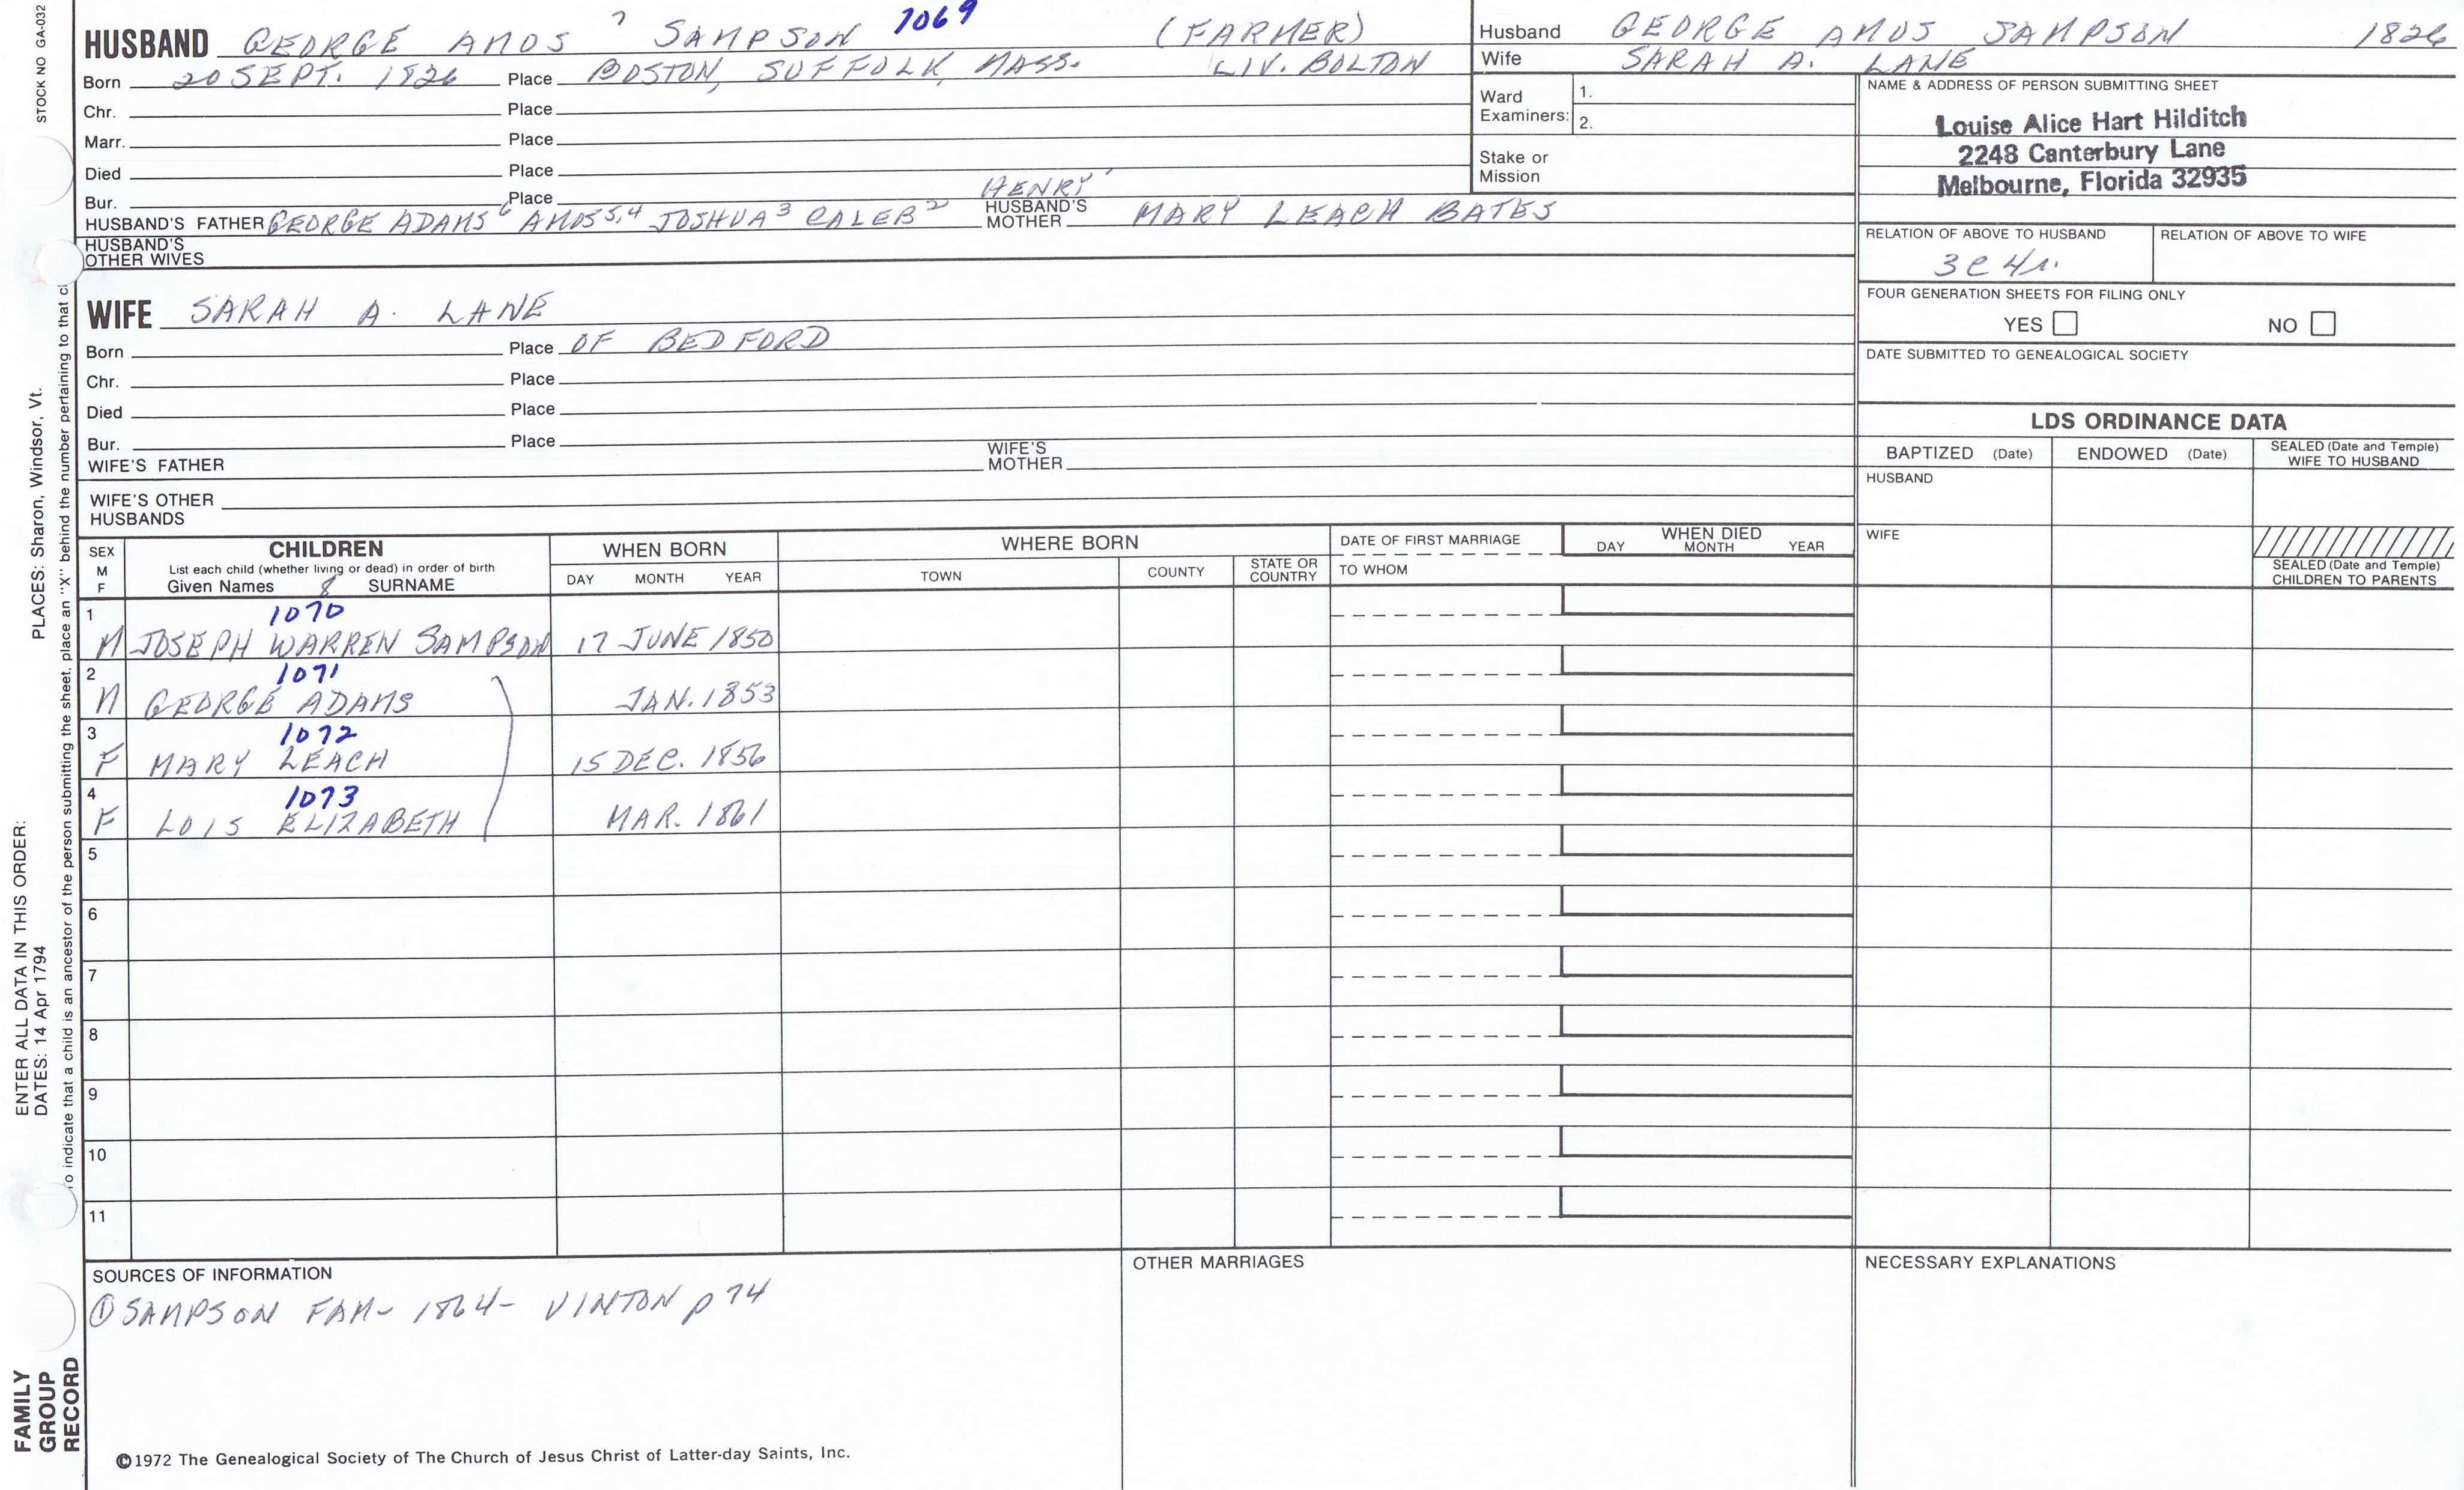 STOCK NO GA-032
HUSBAND GEORGE AMOS 7 SAMPSON 1069 (FARMER)
Born 20 SEPT. 1826 Place BOSTON, SUFFOLK, MASS. LIV. BOLTON
Chr. Place
Marr. Place
Died Place
Bur. Place
HUSBAND'S FATHER GEORGE ADAMS 6 AMOS 5,4 JOSHUA 3 CALEB 2 HENRY 1 HUSBAND'S MOTHER MARY LEACH BATES
HUSBAND'S OTHER WIVES
WIFE SARAH A. LANE
Born Place OF BEDFORD
Chr. Place
Died Place
Bur. Place
WIFE'S FATHER WIFE'S MOTHER
WIFE'S OTHER HUSBANDS
Husband GEORGE AMOS SAMPSON 1826
Wife SARAH A. LANE
Ward Examiners: 1.
2.
Stake or Mission
NAME & ADDRESS OF PERSON SUBMITTING SHEET
Louise Alice Hart Hilditch
2248 Canterbury Lane
Melbourne, Florida 32935
RELATION OF ABOVE TO HUSBAND RELATION OF ABOVE TO WIFE
3C 4r.
FOUR GENERATION SHEETS FOR FILING ONLY
YES NO
DATE SUBMITTED TO GENEALOGICAL SOCIETY
LDS ORDINANCE DATA
BAPTIZED (Date) ENDOWED (Date) SEALED (Date and Temple) WIFE TO HUSBAND
HUSBAND
WIFE
SEALED (Date and Temple) CHILDREN TO PARENTS
SEX M F
CHILDREN
List each child (whether living or dead) in order of birth
Given Names 8 SURNAME
WHEN BORN
DAY MONTH YEAR
WHERE BORN
TOWN COUNTY STATE OR COUNTRY
DATE OF FIRST MARRIAGE
TO WHOM
WHEN DIED
DAY MONTH YEAR
1 1070
M JOSEPH WARREN SAMPSON 17 JUNE 1850
2 1071
M GEORGE ADAMS JAN. 1853
3 1072
F MARY LEACH 15 DEC. 1856
4 1073
F LOIS ELIZABETH MAR. 1861
5
6
7
8
9
10
11
SOURCES OF INFORMATION
① SAMPSON FAM- 1864- VINTON p 74
OTHER MARRIAGES
NECESSARY EXPLANATIONS
©1972 The Genealogical Society of The Church of Jesus Christ of Latter-day Saints, Inc.
FAMILY GROUP RECORD
ENTER ALL DATA IN THIS ORDER:
DATES: 14 Apr 1794
PLACES: Sharon, Windsor, Vt.
To indicate that a child is an ancestor of the person submitting the sheet, place an "X" behind the number pertaining to that